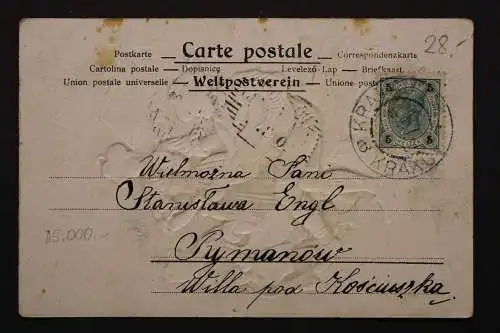 28.-
Postkarte Carte postale Correspondenzkarte
Cartolina postale — Dopisnice Levelező-Lap — Briefkaart
Union postale universelle Weltpostverein Unione
5 5
KRAKÓW
5 5
Wielmożna Pani
Stanisława Engl
15.000.-
Rymanów
Willa pod Kościuszką